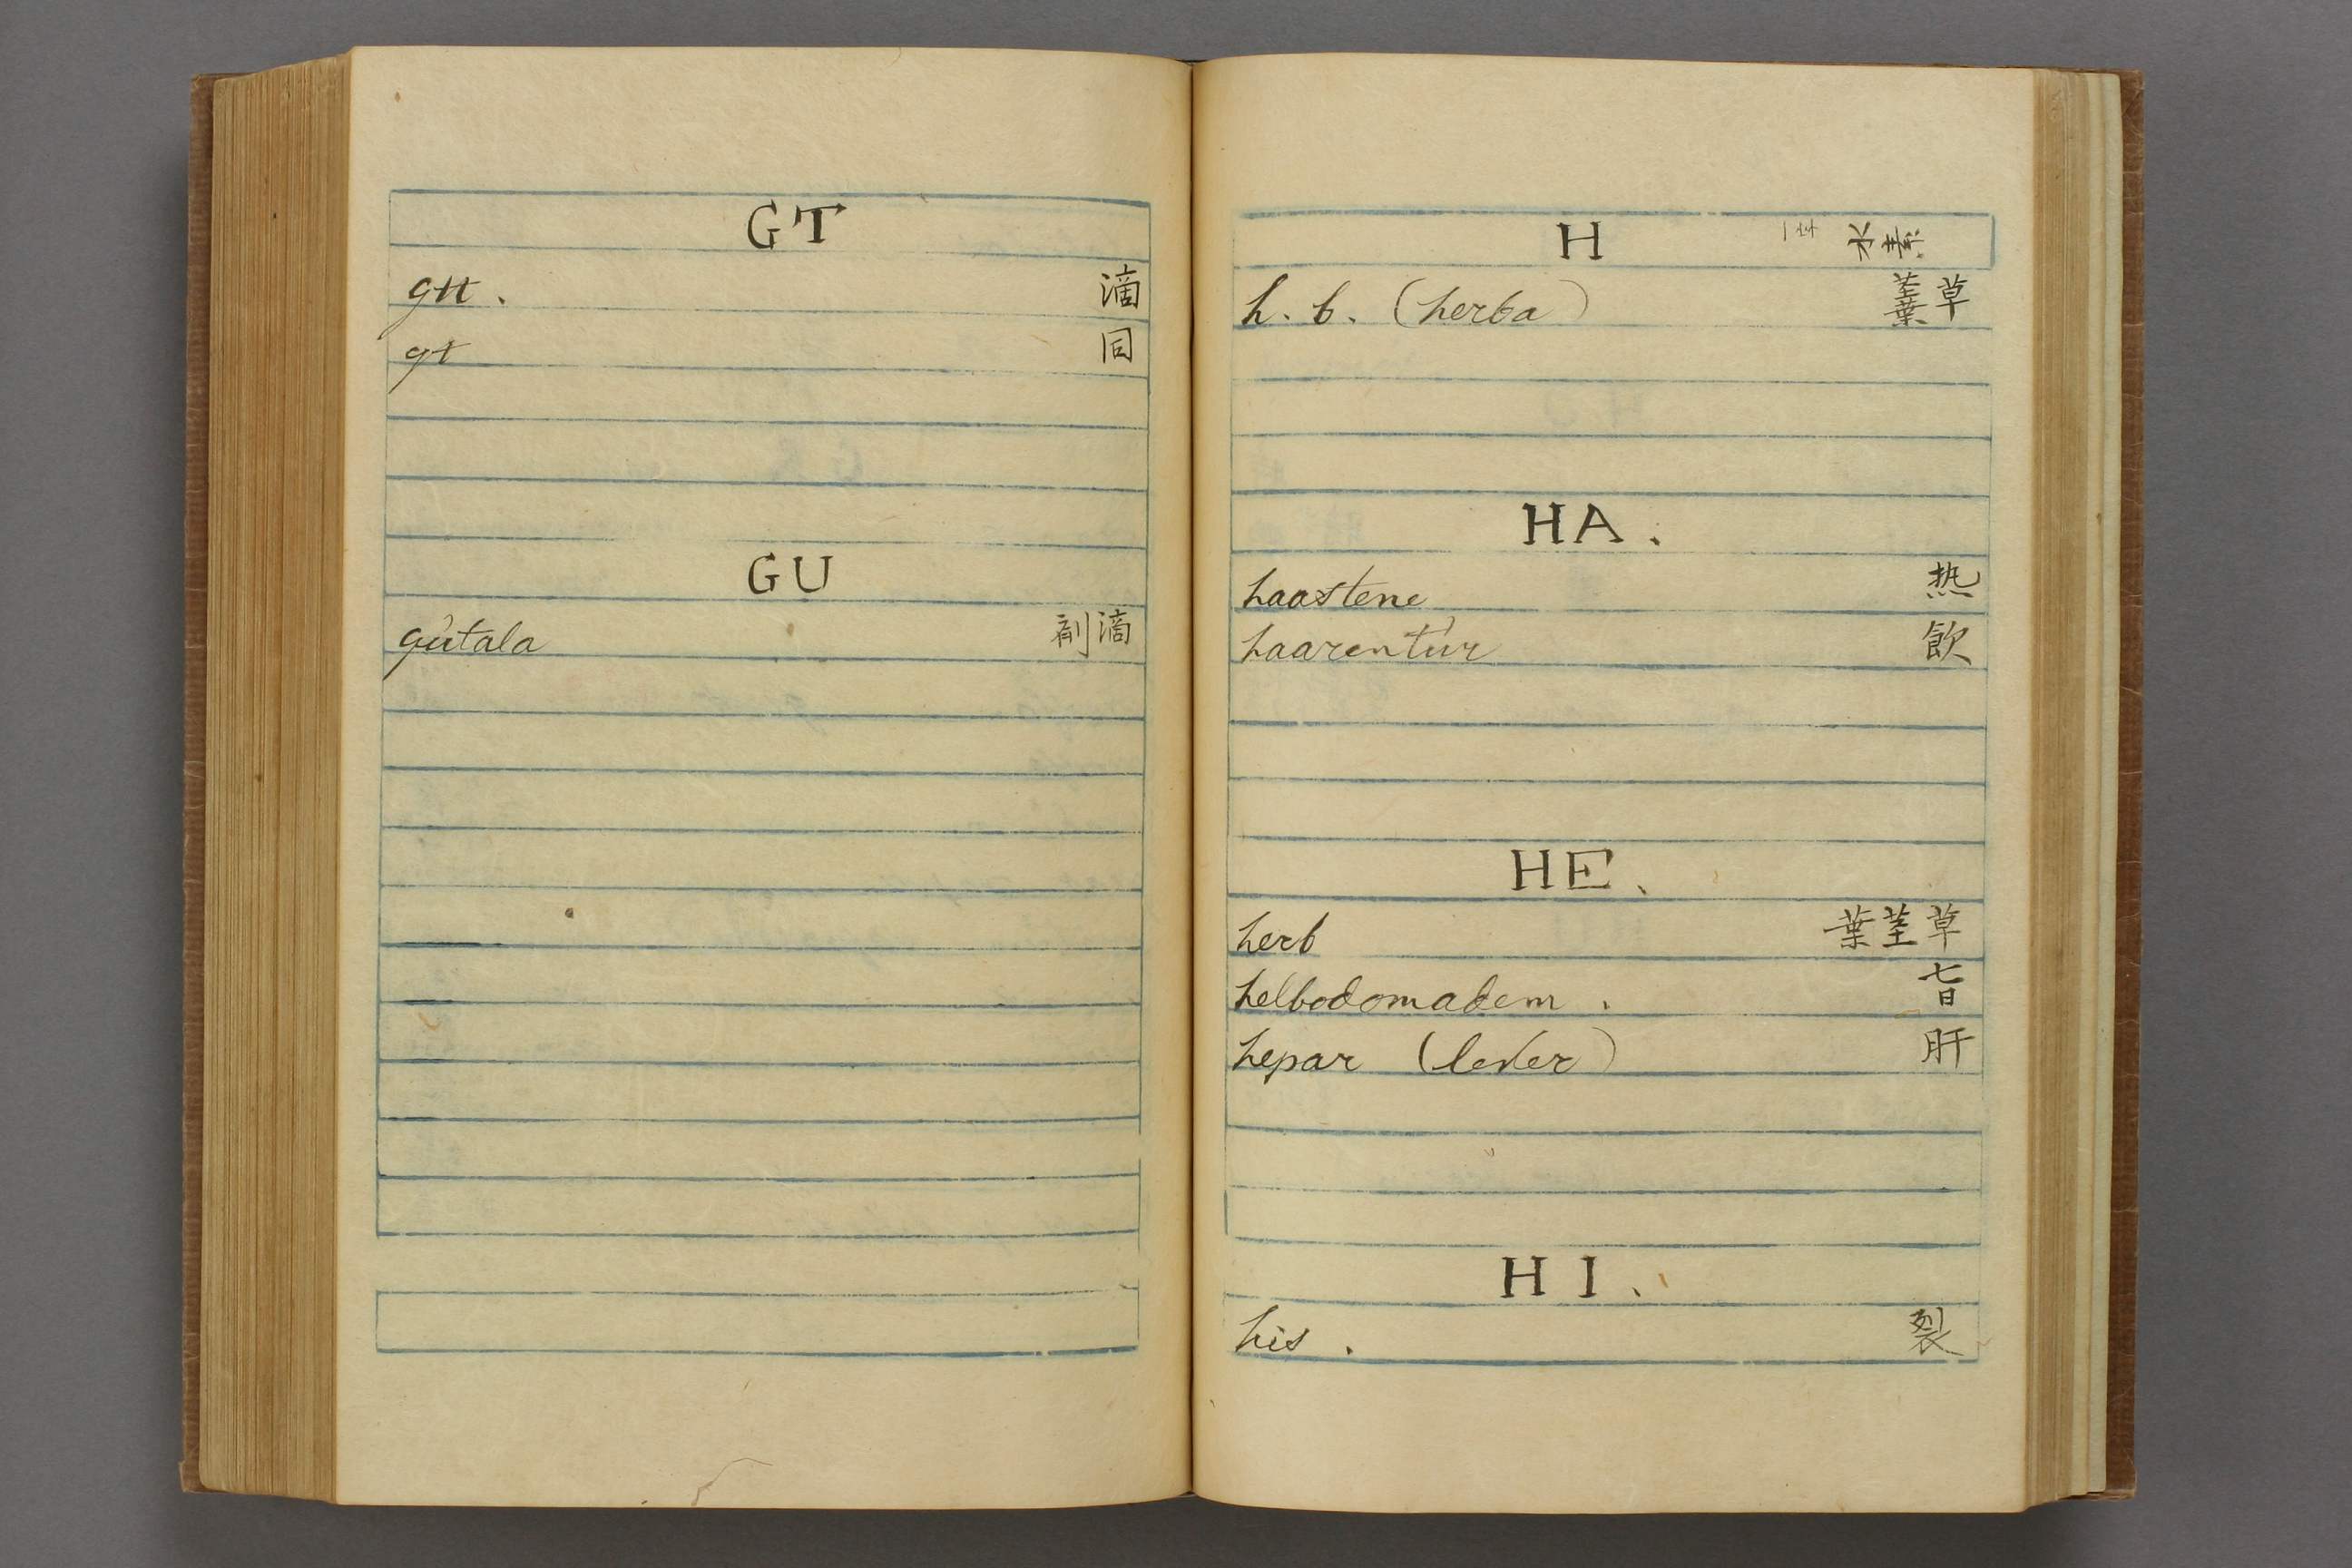 GT
gtt. 滴
gt 同
GU
gútala 滴剤
H 水素
h. b. (herba) 草茎葉
HA.
haastene 热
haarentúr 飲
HE.
herb 草茎葉
helbodomadem. 七日
hepar (lever) 肝
HI.
his. 裂